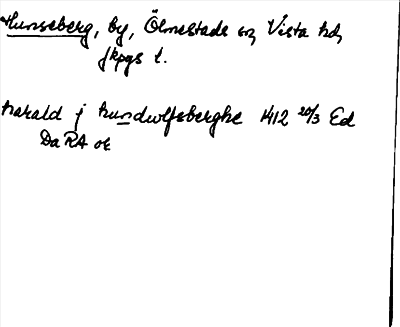 Hunseberg, by, Ölmestads sn, Vista hd,
Jkpgs l.
harald j hundulfsberghe 1412 20/3 Ed
Da RA or